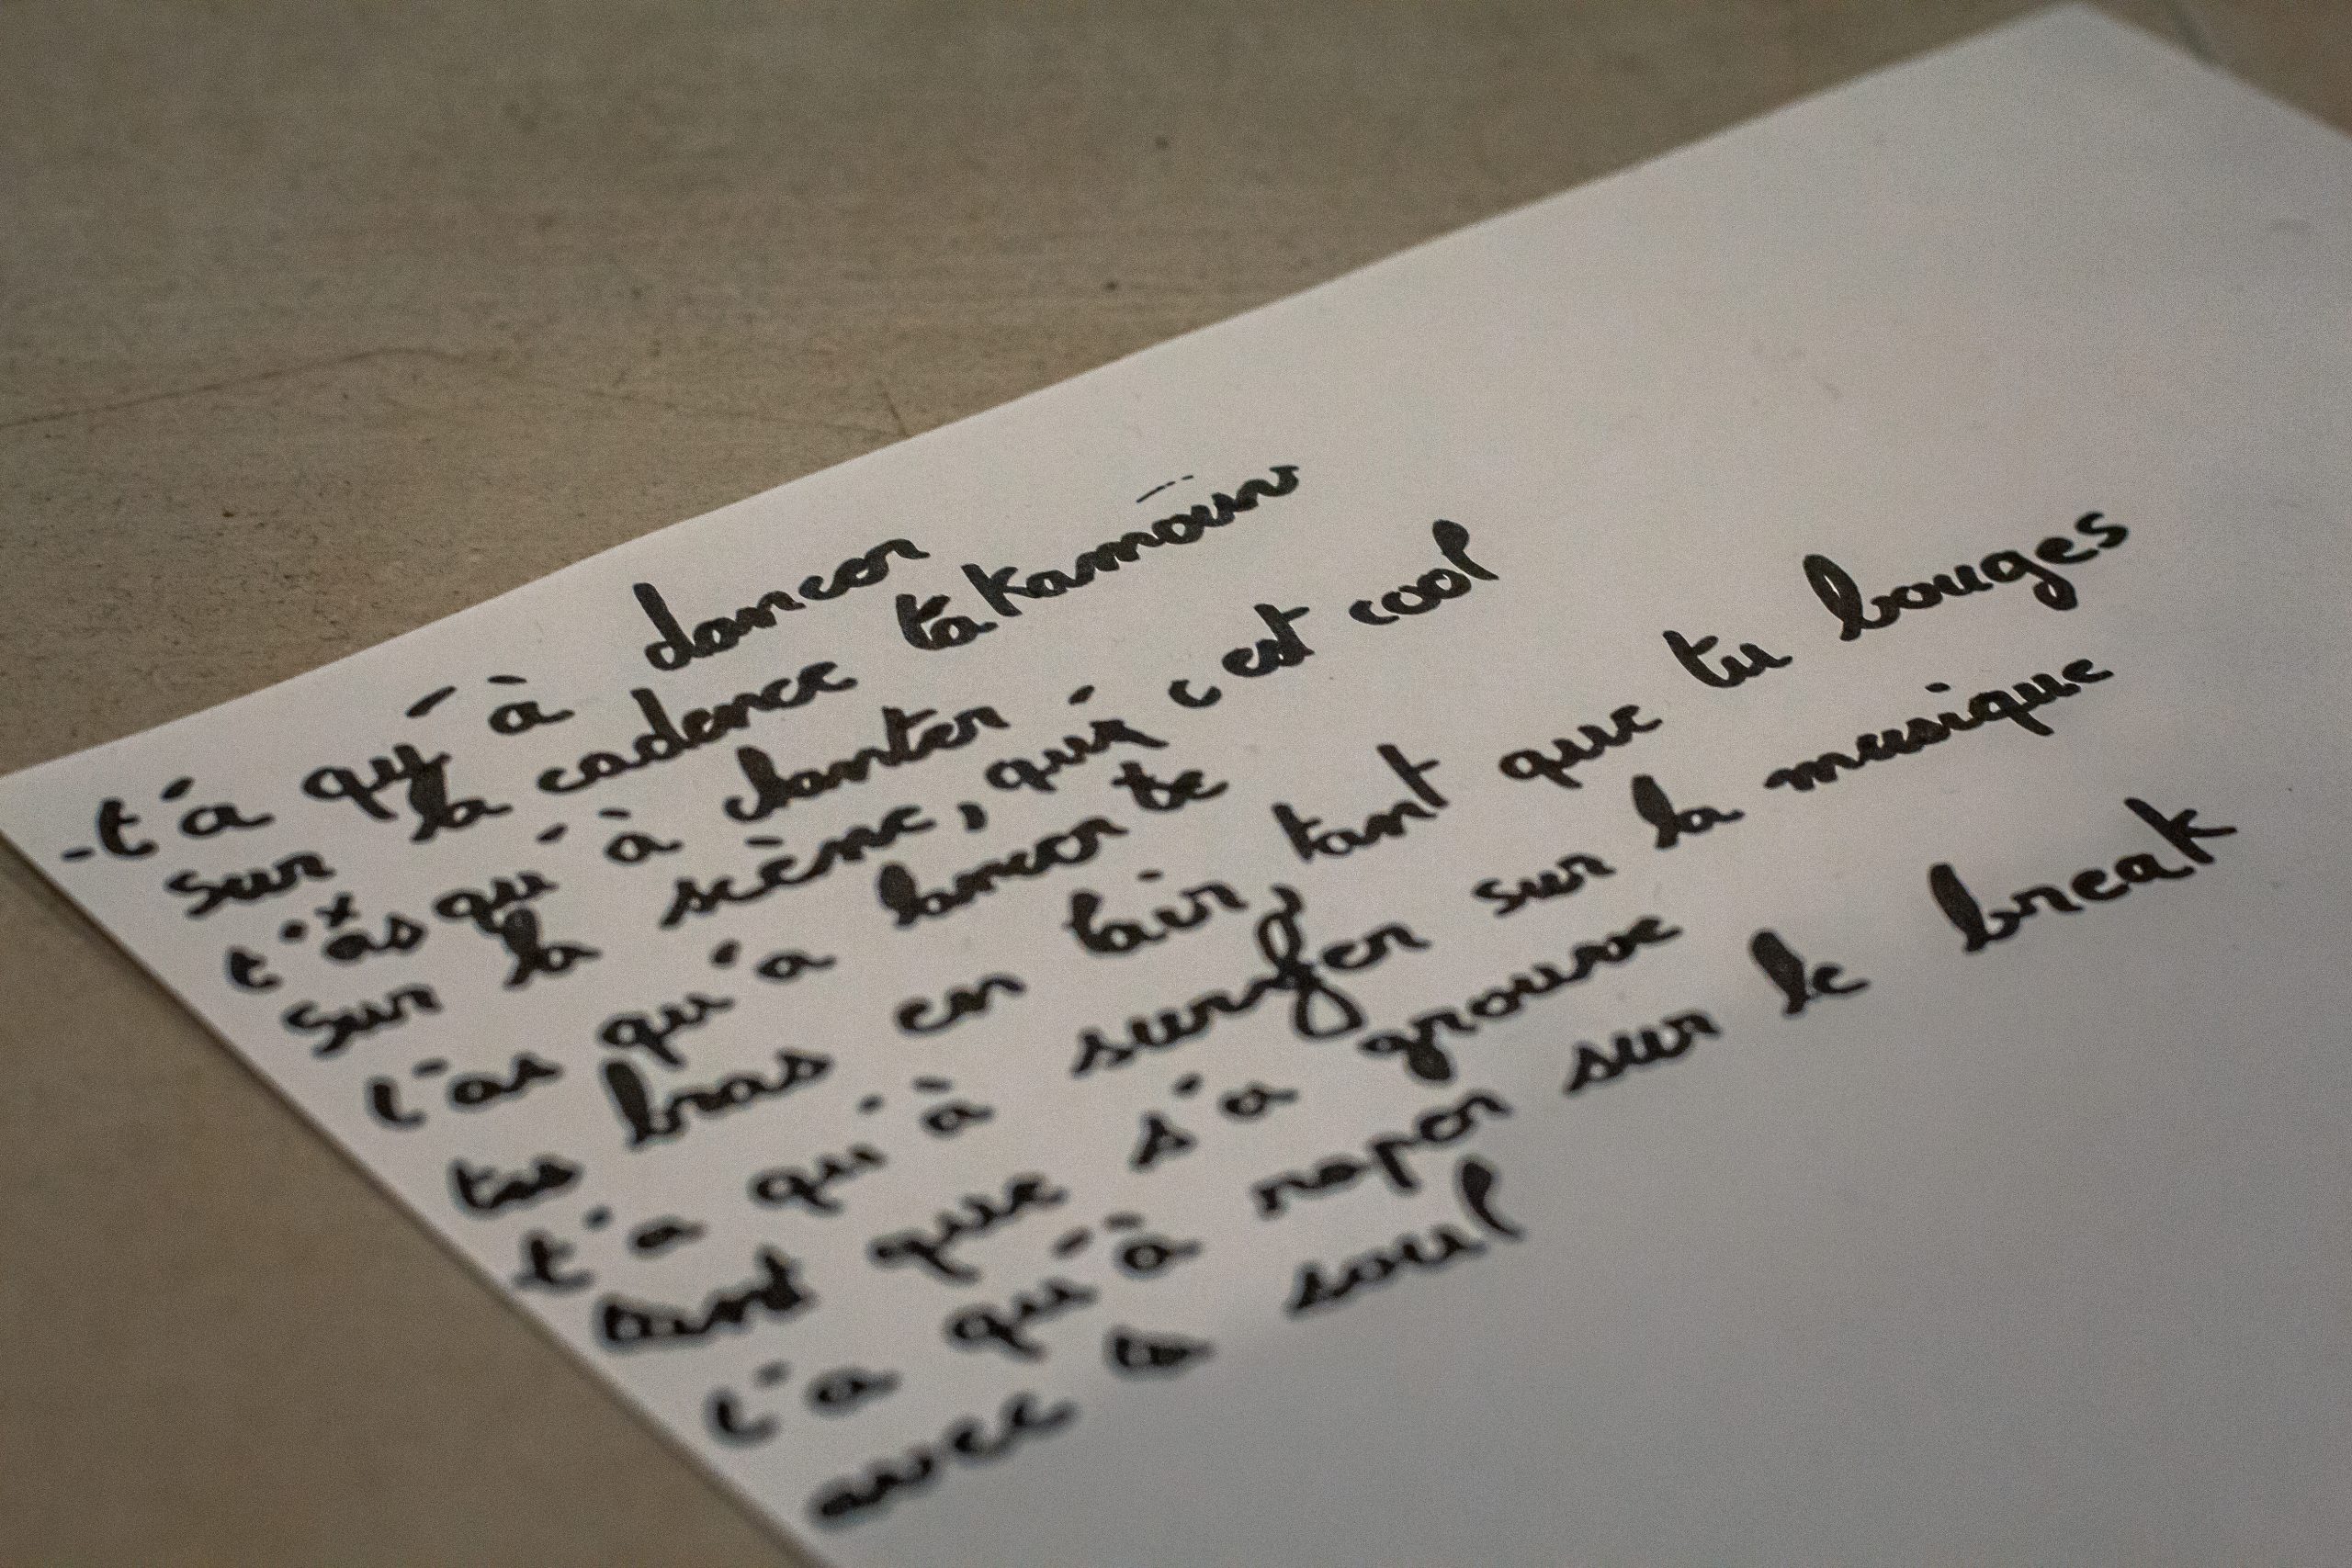 - t'a qu'à dancer
sur la cadence takamouv
t'as qu'à chanter
sur la scène, qui c'est cool
t'as qu'a lancer te
tes bras en lair, tant que tu bouges
t'a qu'à surfer sur la musique
tant que s'a grouve
t'a qu'à raper sur le break
avec ta soul